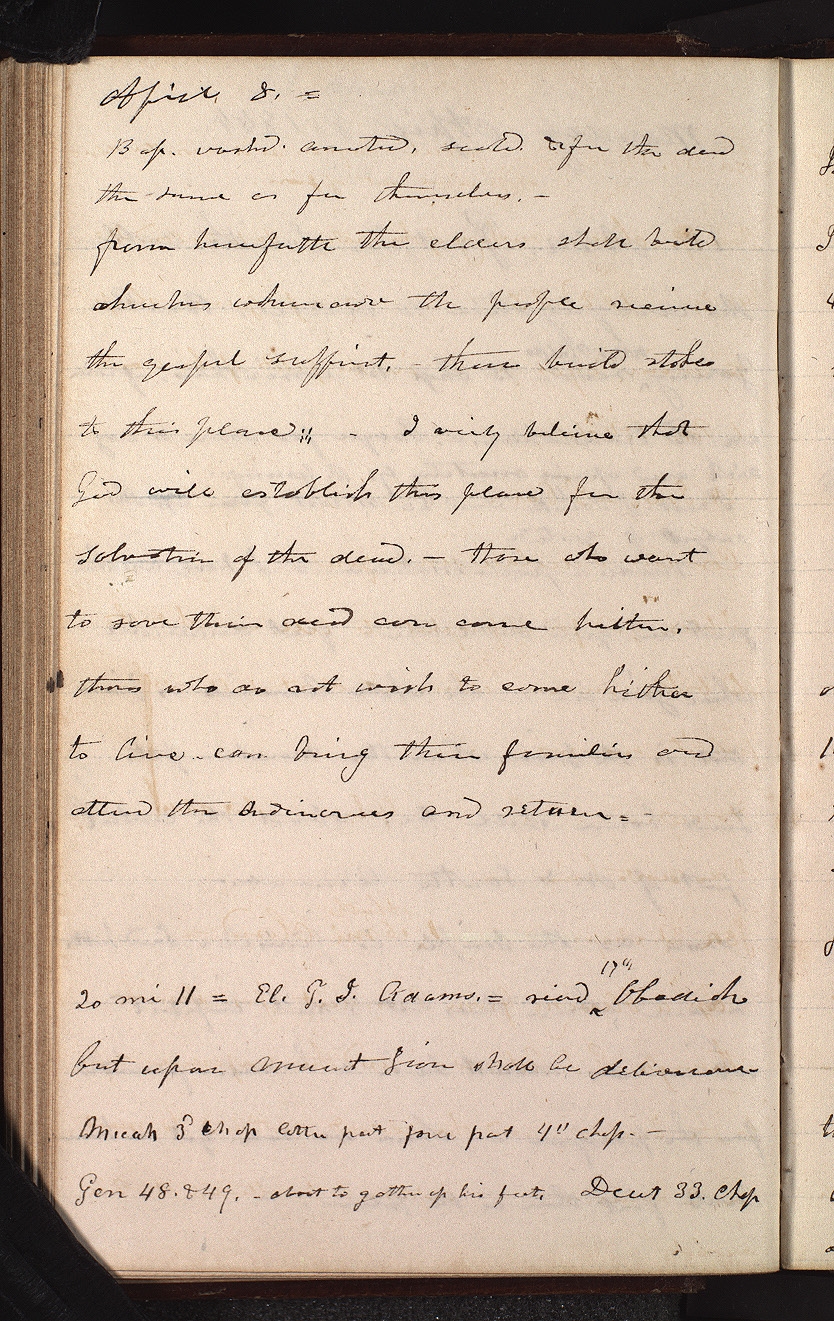 April 8. =
Bap. washd. anointed, seald. & for the dead
the same as for themselves. -
from henceforth the elders shall build
churches wheresoever the people receive
the gospel sufficient. - then build stakes
to this place;; - I verily believe that
God will establish this place for the
salvation of the dead. - those who want
to save their dead can come hither.
those who do not wish to come hither
to live. can bring their families and
attend the ordinances and return = -
20 mi 11 = El. G. J. Adams. = read 17th Obadiah
but upon mount Zion shall be deliverance
Micah 3d chap latter part fore part 4" chap. -
Gen 48. & 49. - about to gather up his feet. Deut 33. chap